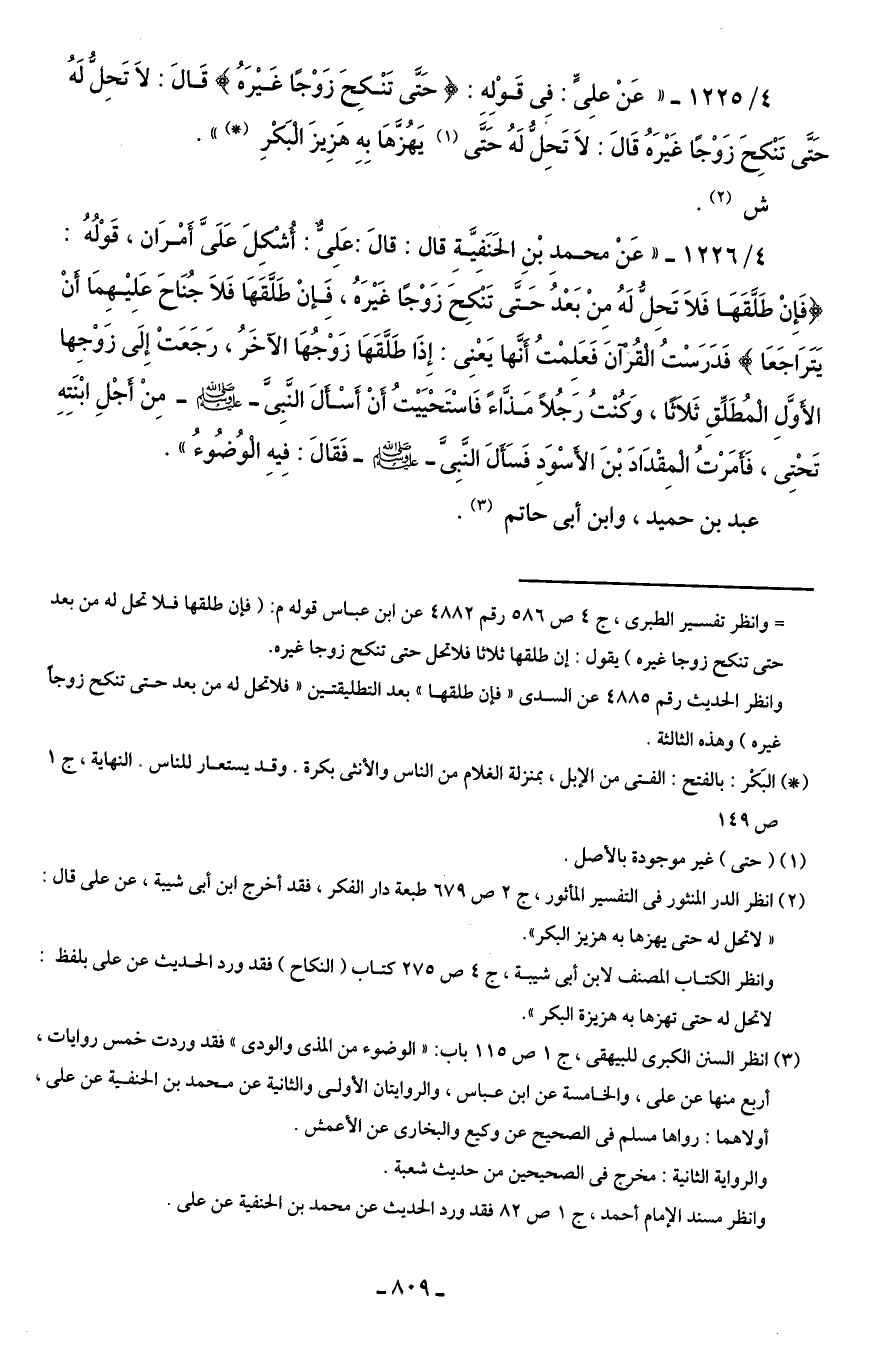 ٤/ ١٢٢٥ ـ « عَنْ عَلِىٍّ : فِى قَـوْلِهِ : ﴿ حَتَّى تَنْـكِحَ زَوْجًا غَـيْرَهُ ﴾ قَـالَ : لاَ تَحِلُّ لَهُ
حَتَّى تَنْكِحَ زَوْجًا غَيْرَهُ قَالَ : لاَ تَحِلُّ لَهُ حَتَّى (١) يَهُزَّهَا بِهِ هَزِيزَ الْبَكْرِ (*) » .
ش (٢) .
٤/ ١٢٢٦ ـ « عَنْ محـمدِ بْنِ الحَنَفِيَّةِ قال : قالَ :عَلِىٌّ : أُشْكِلَ عَلَىَّ أَمْـرَان ، قَوْلُهُ :
﴿فَإِنْ طَلَّقَهَـا فَلاَ تَحِلُّ لَهُ مِنْ بَعْدُ حَـتَّى تَنْكِحَ زَوْجًا غَيْرَهُ ، فَـإِنْ طَلَّقَهَا فَلاَ جُنَاحَ عَلَيْـهِمَا أَنْ
يَتَرَاجَعَا ﴾ فَدَرَسْتُ الْقُرْآنَ فَعَلِمْتُ أَنَّها يَعْنِى : إِذَا طَلَّقَهَا زَوْجُهَا الآخَرُ ، رَجَعَتْ إِلَى زَوْجِهَا
الأَوَّلِ الْمُطَلِّقِ ثَلاَثًا ، وَكُنْتُ رَجُلاً مَـذَّاءً فَاسْتَحْيَيْتُ أَنْ أَسْـأَلَ النَّبِىَّ ـ ﷺ ـ مِنْ أَجْلِ ابْنَتِهِ
تَحْتِى ، فَأَمَرْتُ الْمِقْدَادَ بْنَ الأَسْوَدِ فَسَأَلَ النَّبِىَّ ـ ﷺ ـ فَقَالَ : فِيهِ الْوُضُوءُ » .
عبد بن حميد ، وابن أبى حاتم (٣) .
= وانظر تفسـير الطبرى ، ج ٤ ص ٥٨٦ رقم ٤٨٨٢ عن ابن عبـاس قوله م: ( فإن طلقها فـلا تحل له من بعد
حتى تنكح زوجا غيره ) يقول : إن طلقها ثلاثا فلاتحل حتى تنكح زوجا غيره.
وانظر الحديث رقم ٤٨٨٥ عن السـدى « فإن طلقهـا » بعد التطليقتـين « فلاتحل له من بعد حـتى تنكح زوجاً
غيره ) وهذه الثالثة .
(*) البَكْر : بالفتح : الفـتى من الإبل ، بمنزلة الغلام من الناس والأنثى بكرة . وقـد يستعـار للناس . النهاية ، ج ١
ص ١٤٩
(١) ( حتى ) غير موجودة بالأصل .
(٢) انظر الدر المنثور فى التفسير المأثور ، ج ٢ ص ٦٧٩ طبعة دار الفكر ، فقد أخرج ابن أبى شيبة ، عن على قال :
« لاتحل له حتى يهزها به هزيز البكر».
وانظر الكتـاب المصنف لابن أبى شيبـة ، ج ٤ ص ٢٧٥ كتـاب ( النكاح ) فقد ورد الحـديث عن على بلفظ :
لاتحل له حتى تهزها به هزيزة البكر ».
(٣) انظر السنن الكبرى للبيهقى ، ج ١ ص ١١٥ باب: « الوضوء من المذى والودى » فقد وردت خمس روايات ،
أربع منها عن على ، والخـامسة عن ابن عبـاس ، والروايتان الأولـى والثانية عن مـحمد بن الحنفـية عن على ،
أولاهما : رواها مسلم فى الصحيح عن وكيع والبخارى عن الأعمش .
والرواية الثانية : مخرج فى الصحيحين من حديث شعبة .
وانظر مسند الإمام أحمد ، ج ١ ص ٨٢ فقد ورد الحديث عن محمد بن الحنفية عن على .
ـ ٨٠٩ ـ